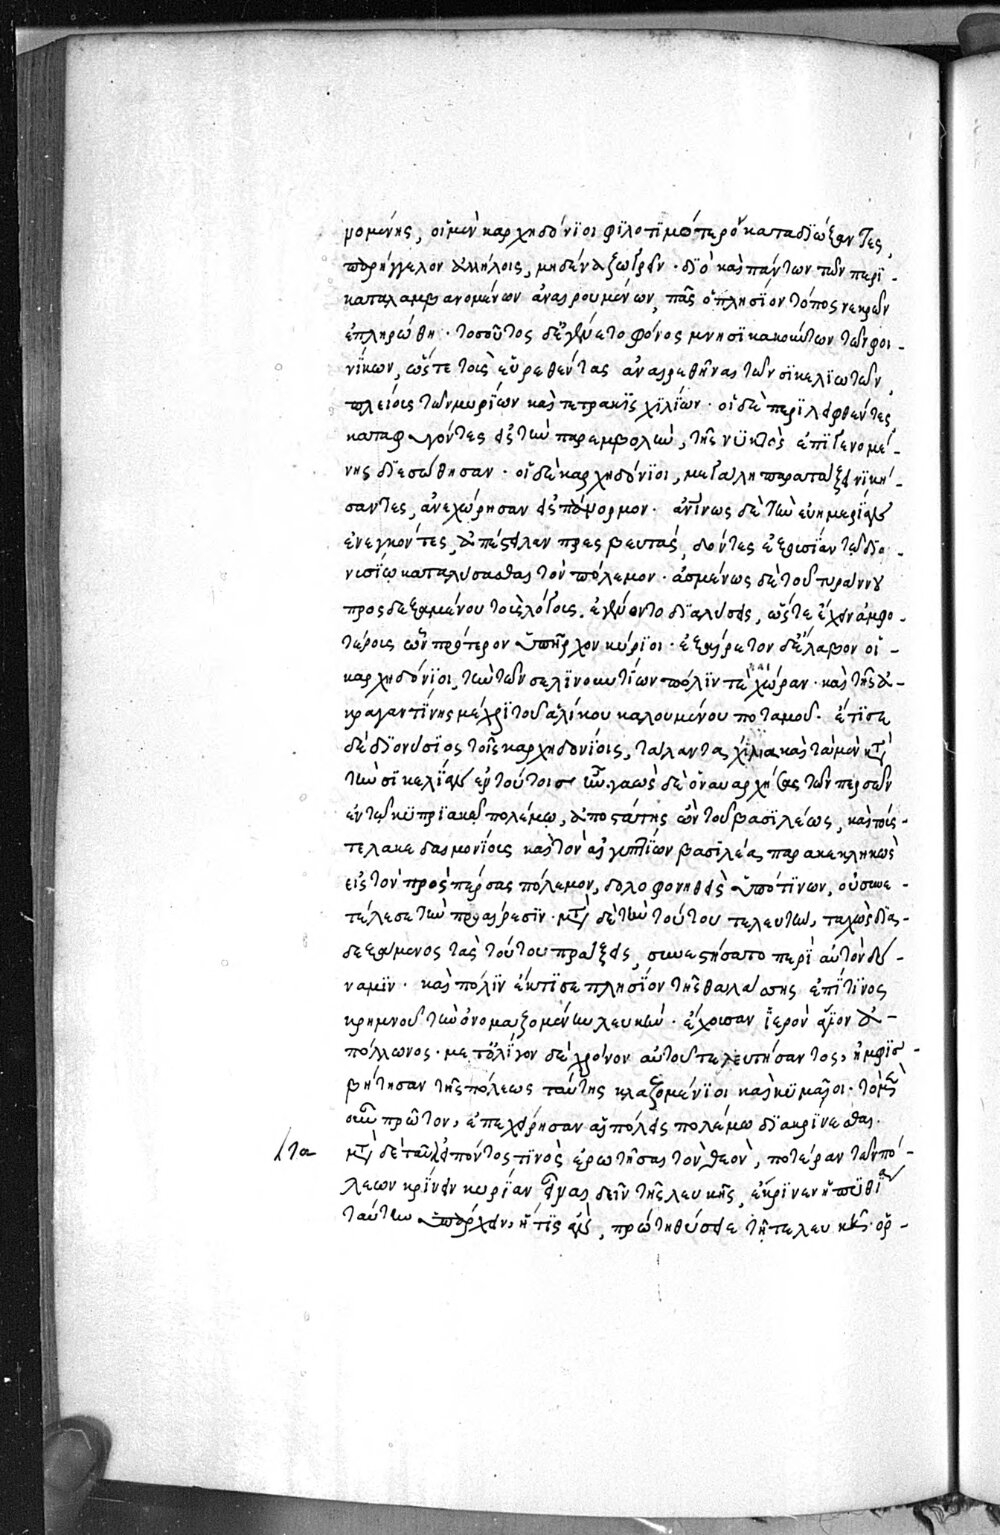 νομένης, οἱ μὲν καρχηδόνιοι φιλοτιμότερον καταδιώξαντες,
παρήγγελον ἀλλήλοις, μηδένα ζωγρεῖν· διὸ καὶ πάντων τῶν περι-
καταλαμβανομένων ἀναιρουμένων, πᾶς ὁ πλησίον τόπος νεκρῶν
ἐπληρώθη· τοσοῦτος δ' ἐγένετο φόνος μνησικακούντων τῶν φοι-
νίκων, ὥστε τοὺς εὑρεθέντας ἀναιρεθῆναι τῶν σικελιωτῶν,
πλείους τῶν μυρίων καὶ τετρακισχιλίων· οἱ δὲ περιλειφθέντες
καταφυγόντες εἰς τὴν παρεμβολὴν, τῆς νυκτὸς ἐπιγενομέ-
νης διεσώθησαν· οἱ δὲ καρχηδόνιοι, μεγάλη παρατάξει νική-
σαντες, ἀνεχώρησαν εἰς πάνορμον· ἀνθίνως δὲ τὴν εὐημερίαν
ἐνεγκόντες, ἀπέστειλαν πρεσβευτὰς, δόντες ἐξουσίαν τῷ διο-
νυσίῳ καταλύσασθαι τὸν πόλεμον· ἀσμένως δὲ τοῦ τυράννου
προσδεξαμένου τοὺς λόγους, ἐγένοντο διαλύσεις, ὥστε ἔχειν ἀμφο-
τέροις ὧν πρότερον ὑπῆρχον κύριοι· ἐξαίρετον δ' ἔλαβον οἱ
καρχηδόνιοι, τὴν τῶν σελινουντίων πόλιν τε καὶ χώραν· καὶ τῆς ἀ-
κραγαντίνης μέχρι τοῦ ἁλίκου καλουμένου ποταμοῦ· ἔτισε
δὲ διονύσιος τοῖς καρχηδονίοις, τάλαντα χίλια καὶ τὰ μὲν κατὰ
τὴν σικελίαν ἐν τούτοις ἦν γαὼς δὲ ὁ ναυαρχήσας τῶν περσῶν
ἐν τῷ κυπριακῷ πολέμῳ, ἀποστάτης ὢν τοῦ βασιλέως, καὶ τούς-
τε λακεδαιμονίους καὶ τὸν αἰγυπτίων βασιλέα παρακεκληκὼς
εἰς τὸν πρὸς πέρσας πόλεμον, δολοφονηθεὶς ὑπό τινων, οὐ συνε-
τέλεσε τὴν προαίρεσιν· μετὰ δὲ τὴν τούτου τελευτὴν, ταχὼς δια-
δεξάμενος τὰς τούτου πράξεις, συνεστήσατο περὶ αὑτὸν δύ-
ναμιν· καὶ πόλιν ἔκτισε πλησίον τῆς θαλάσσης ἐπί τινος
κρημνοῦ τὴν ὀνομαζομένην λευκὴν· ἔχουσαν ἱερὸν ἅγιον ἀ-
πόλλωνος· μετ' ὀλίγον δὲ χρόνον αὐτοῦ τελευτήσαντος, ἠμφισ-
βήτησαν τῆς πόλεως ταύτης κλαζομένιοι καὶ κυμαῖοι· τὸ μὲν
οὖν πρῶτον, ἐπεχείρησαν αἱ πόλεις πολέμῳ διακρίνεσθαι·
μετὰ δὲ ταῦτ' εἰπόντος τινὸς ἐρωτῆσαι τὸν θεὸν, ποτέραν τῶν πό-
λεων κρίνειν κυρίαν εἶναι δεῖν τῆς λευκῆς, ἔκρινεν ἡ πυθία
ταύτην ὑπάρχειν, ἥτις ἂν, πρώτη θύσειε τῆ τε λευκῇ· ὁρ-